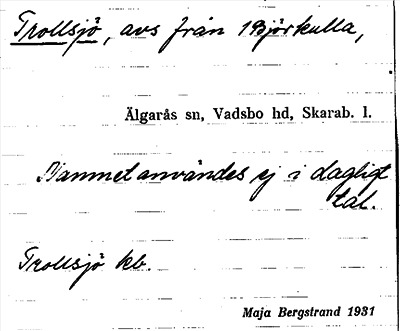 Trollsjö, avs från Björkulla,
Älgarås sn, Vadsbo hd, Skarab. l.
Namnet användes ej i dagligt
tal.
Trollsjö kb.
Maja Bergstrand 1931